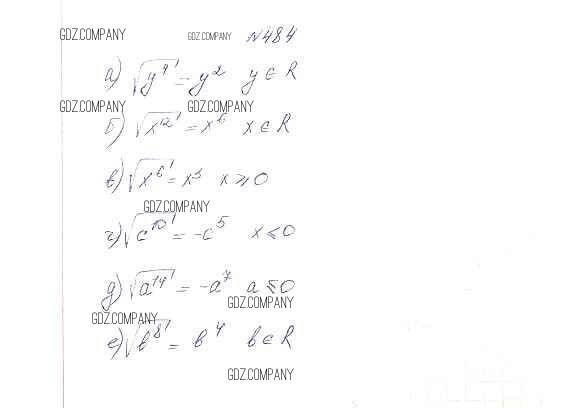 GDZ.COMPANY GDZ.COMPANY N484
а) √y⁴ = y² y ∈ R
GDZ.COMPANY GDZ.COMPANY
б) √x¹² = x⁶ x ∈ R
в) √x⁶ = x³ x ⩾ 0
GDZ.COMPANY
г) √c¹⁰ = -c⁵ x ⩽ 0
д) √a¹⁴ = -a⁷ a ⩽ 0
GDZ.COMPANY
GDZ.COMPANY
е) √b⁸ = b⁴ b ∈ R
GDZ.COMPANY